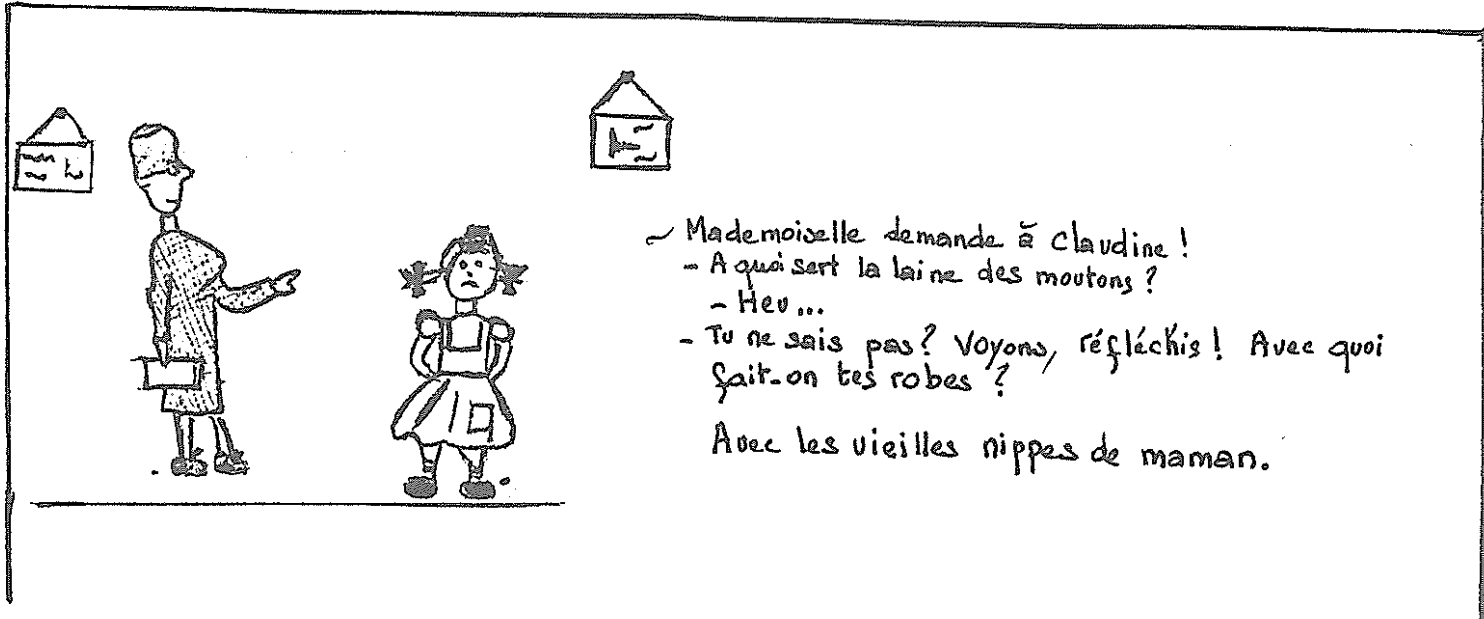 ~ Mademoiselle demande à Claudine !
- A quoi sert la laine des moutons ?
- Heu...
- Tu ne sais pas ? Voyons, réfléchis ! Avec quoi
fait-on tes robes ?
Avec les vieilles nippes de maman.